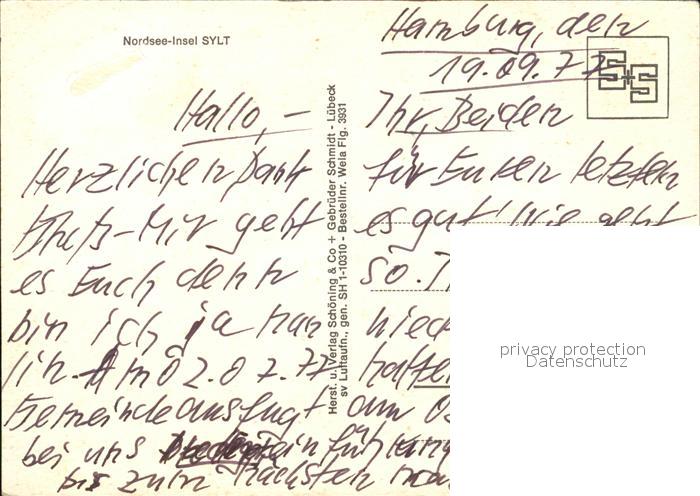 Nordsee-Insel SYLT
Hamburg, den
19.09.77
S+S
Hallo, - Ihr, Beiden
Herzlichen Dank für Euren letzten
Mir geht es gut! Wie geht
es Euch denn so.
bin ich ja nun wied
lin. Am 02.07.77 hatten
Gemeindeausflugt am
bei uns ein für
bis zum nächsten
Herst. u. Verlag Schöning & Co + Gebrüder Schmidt - Lübeck
sv Luftaufn., gen. SH 1-10310 - Bestellnr. Wela Flg. 3931
privacy protection
Datenschutz